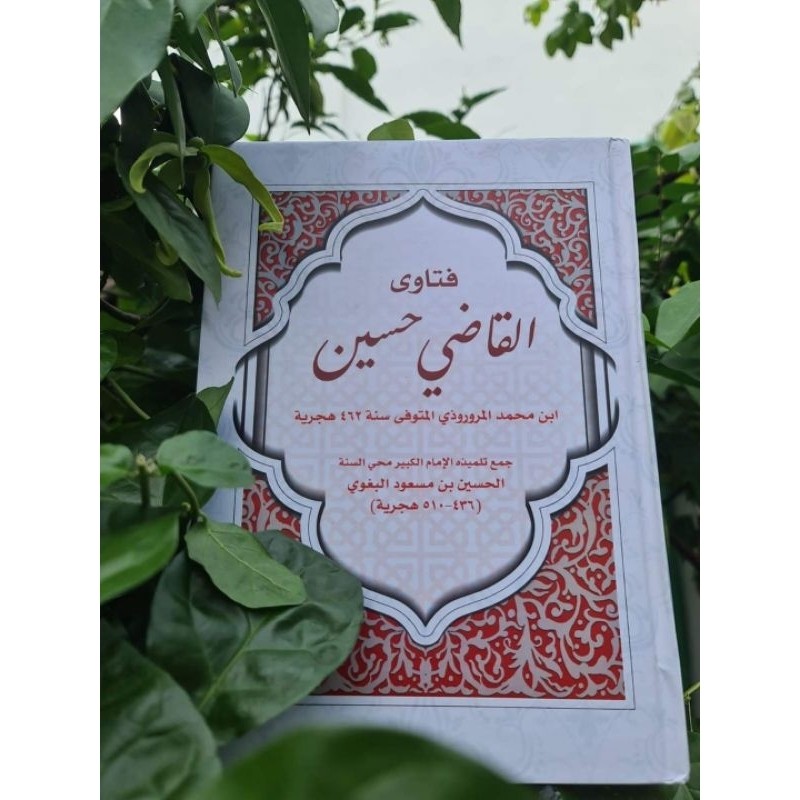 فتاوى
القاضي حسين
ابن محمد المروروذي المتوفى سنة ٤٦٢ هجرية
جمع تلميذه الإمام الكبير محي السنة
الحسين بن مسعود البغوي
(٤٣٦-٥١٠ هجرية)